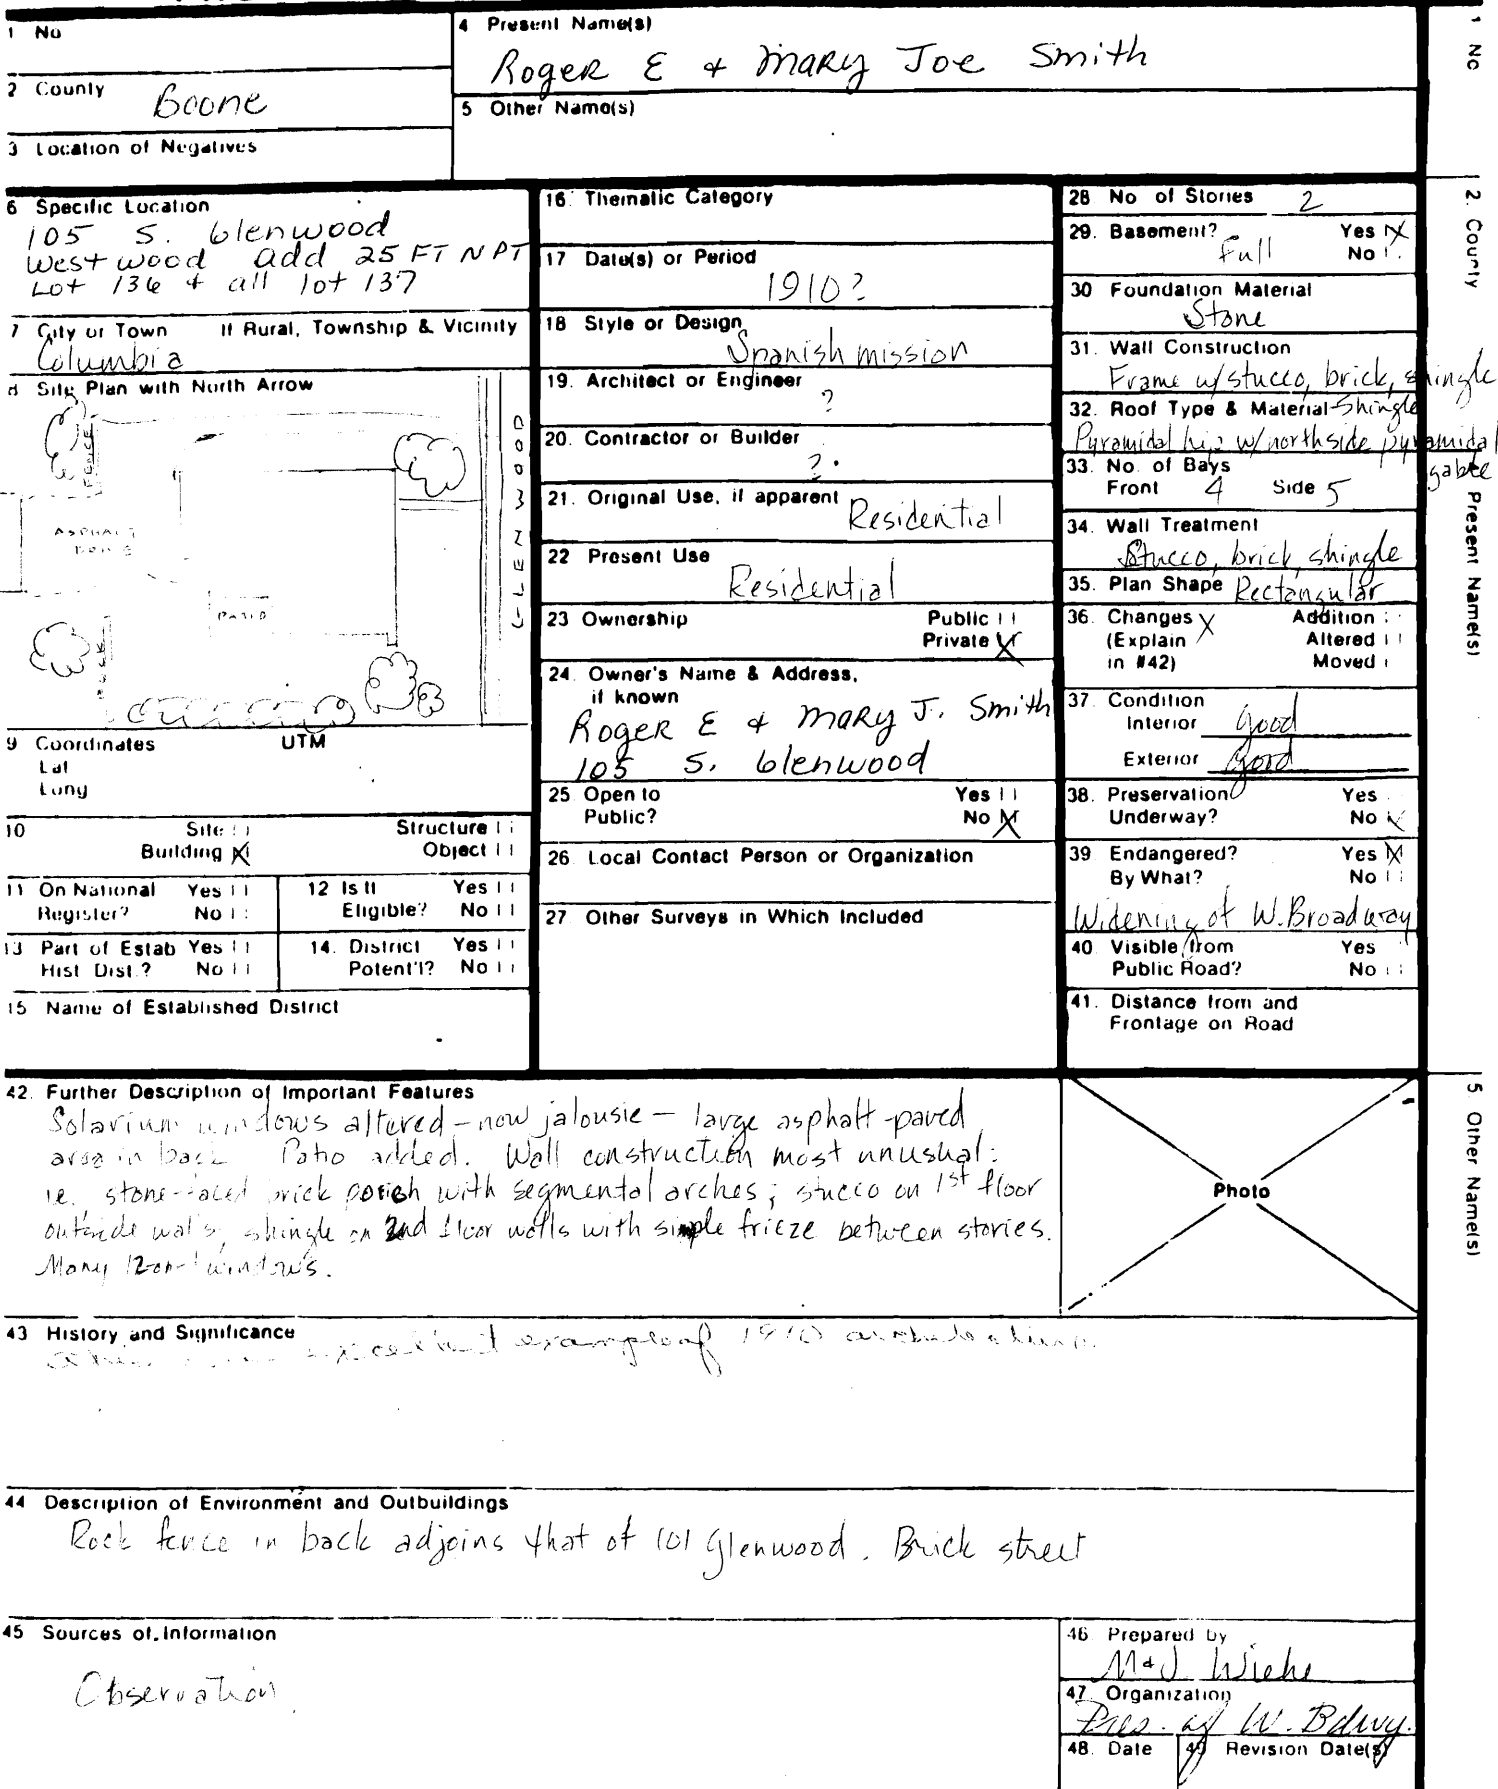 1 No
4 Present Name(s)
Roger E & Mary Joe Smith
2 County
Boone
5 Other Name(s)
3 Location of Negatives
6 Specific Location
105 S. Glenwood
Westwood add 25 FT N PT
Lot 136 & all lot 137
7 City or Town If Rural, Township & Vicinity
Columbia
8 Site Plan with North Arrow
FENCE
ASPHALT
PATIO
GLENWOOD
9 Coordinates UTM
Lat
Long
10 Site Structure
Building X Object
11 On National Register? Yes No
12 Is It Eligible? Yes No
13 Part of Estab Hist Dist.? Yes No
14. District Potent'l? Yes No
15 Name of Established District
16. Thematic Category
17 Date(s) or Period
1910?
18 Style or Design
Spanish mission
19. Architect or Engineer
?
20. Contractor or Builder
?
21. Original Use, if apparent
Residential
22 Present Use
Residential
23 Ownership Public
Private X
24. Owner's Name & Address,
if known
Roger E & Mary J. Smith
105 S. Glenwood
25 Open to Yes
Public? No X
26. Local Contact Person or Organization
27. Other Surveys in Which Included
28 No of Stories 2
29. Basement? Yes X
Full No
30 Foundation Material
Stone
31. Wall Construction
Frame w/stucco, brick, shingle
32. Roof Type & Material Shingle
Pyramidal hip w/northside pyramidal
gable
33. No. of Bays
Front 4 Side 5
34. Wall Treatment
Stucco, brick, shingle
35. Plan Shape Rectangular
36. Changes X Addition
(Explain Altered
in #42) Moved
37. Condition
Interior Good
Exterior Good
38. Preservation Yes
Underway? No X
39. Endangered? Yes X
By What? No
Widening of W. Broadway
40 Visible from Yes
Public Road? No
41. Distance from and
Frontage on Road
42. Further Description of Important Features
Solarium windows altered - now jalousie - large asphalt-paved
area in back Patio added. Wall construction most unusual:
i.e. stone-faced brick porch with segmental arches; stucco on 1st floor
outside walls, shingle on 2nd floor walls with simple frieze between stories.
Many windows.
Photo
43 History and Significance
excellent example of 1910 architecture
44 Description of Environment and Outbuildings
Rock fence in back adjoins that of 101 Glenwood. Brick street
45 Sources of Information
Observation
46 Prepared by
M & J Wiehe
47 Organization
Pres. of W. Bdwy.
48. Date 49 Revision Date(s)
1 No
2. County
Present Name(s)
5 Other Name(s)